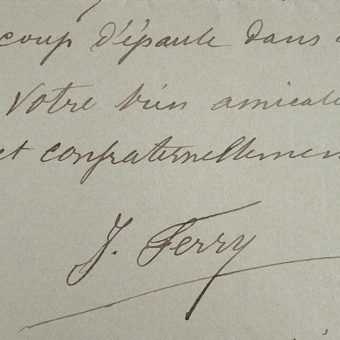 coup d'épaule dans
Votre bien amicale
et confraternellemen
J. Ferry